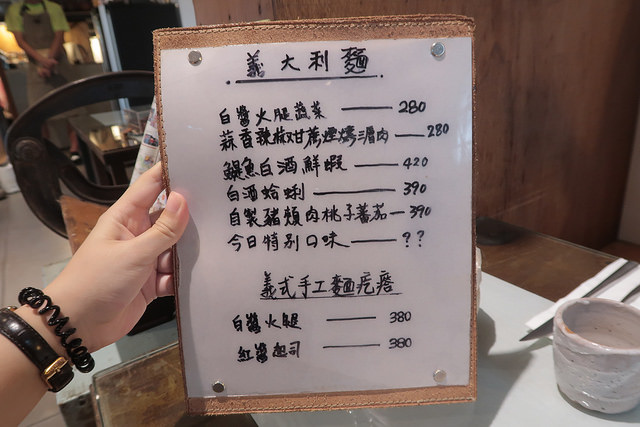 義大利麵
白醬火腿蔬菜 —— 280
蒜香辣椒甘蔗煙燻滷肉 — 280
鯷魚白酒鮮蝦 —— 420
白酒蛤蜊 —— 390
自製豬頰肉桃子蕃茄 — 390
今日特別口味 —— ??
義式手工麵疙瘩
白醬火腿 —— 380
紅醬起司 —— 380